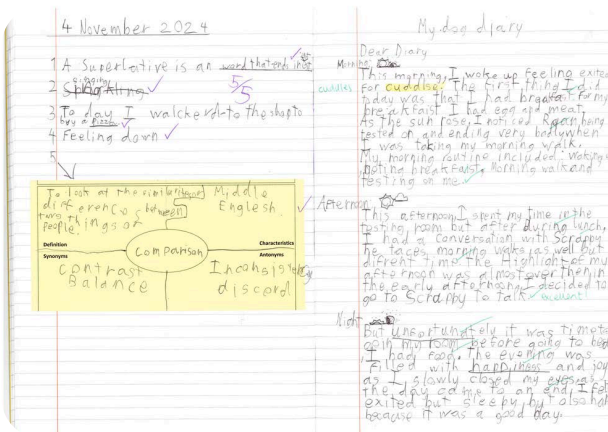 4 November 2024
1 A Superlative is an word that end in est
2 Sparkling
3 To day I walcked to the shop to
buy a pizza
4 Feeling down
5
5/5
To look at the similarities or
differences between
two things or
people.
Middle
Englesh.
Definition
Characteristics
Comparison
Synonyms
Antonyms
contrast
Balance
Inconsistency
discord
My dog diary
Dear Diary
Morning:
This morning, I woke up feeling exited
cuddles
for cuddlse. The first thing I did
today was that I had breakfast. for my
breakfast I had egg and meat.
As the sun rose, I noticed Ryan being
tested on and ending very badly when
I was taking my morning walk.
My morning routine included: waking
, eating breakfast, morning walk and
testing on me.
Afternoon:
This afternoon, I spent my time in the
testing room but after during lunch,
I had a conversation with Scrappy
he taces morning wakes as well but
difrent time. The Highlight of my
afternoon was almost over then in
the early afternoon, I decided to
go to Scrappy to talk. excellent!
Night
But unfortunately it was time to
go in my room before going to bed
, I had food. The evening was
filled with happiness and joy
as I slowly closed my eyes. as
the day came to an end, I felt
exited but sleepy but also
because it was a good day.